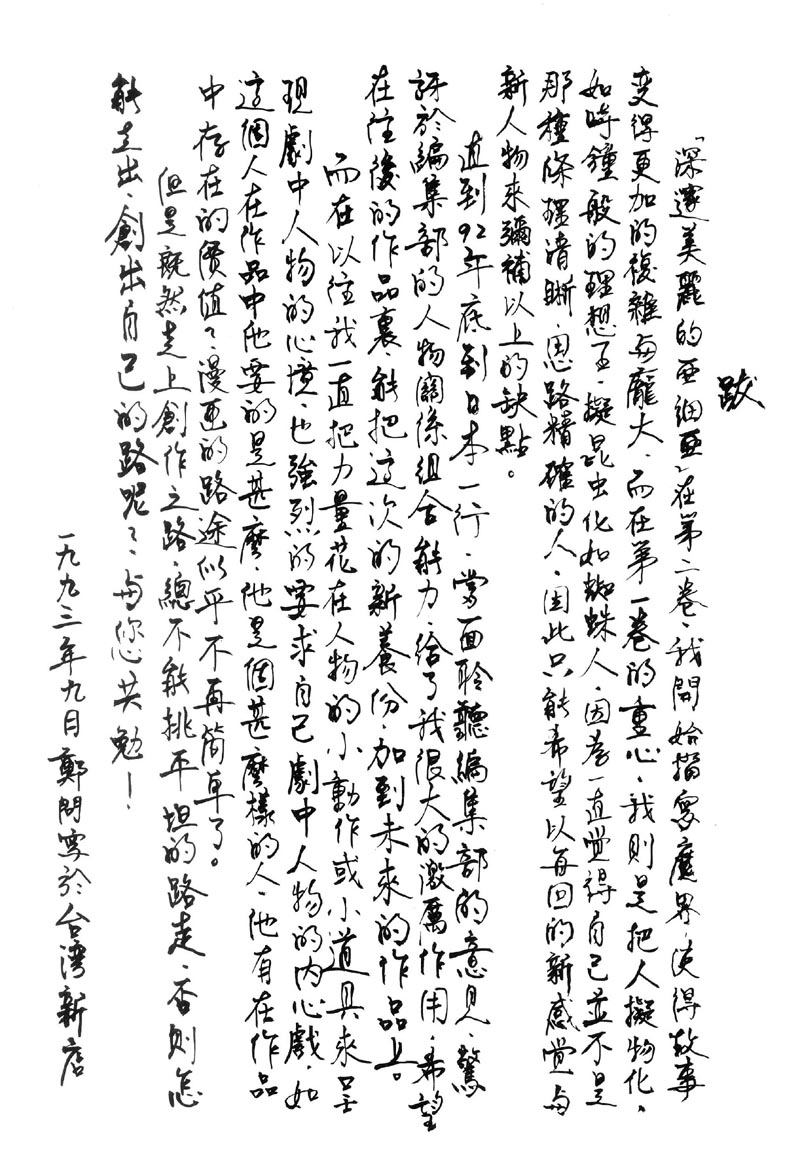 跋
「深邃美麗的亞細亞」在第二卷、我開始描寫魔界、使得故事
变得更加的複雜与龐大、而在第一卷的重心、我則是把人擬物化、
如時鐘般的理想王、擬昆虫化如蜘蛛人、因為一直覚得自己並不是
那種條理清晰、思路精確的人、因此只能希望以每回的新感覚与
新人物來彌補以上的缺點。
直到92年底到日本一行、當面聆聽編集部的意見、驚
訝於編集部的人物關係組合能力、給了我很大的激厲作用、希望
在往後的作品裏、能把這次的新養份、加到未來的作品上。
而在以往我一直把力量花在人物的小動作或小道具來呈
現劇中人物的心境、也強烈的要求自己劇中人物的内心戲、如
這個人在作品中他要的是甚麼、他是個甚麼樣的人、他有在作品
中存在的價值？、漫画的路途似乎不再簡单了。
但是既然走上創作之路、總不能挑平坦的路走、否則怎
能走出、創出自己的路呢？、与您共勉！
一九九三年九月鄭問写於台湾新店